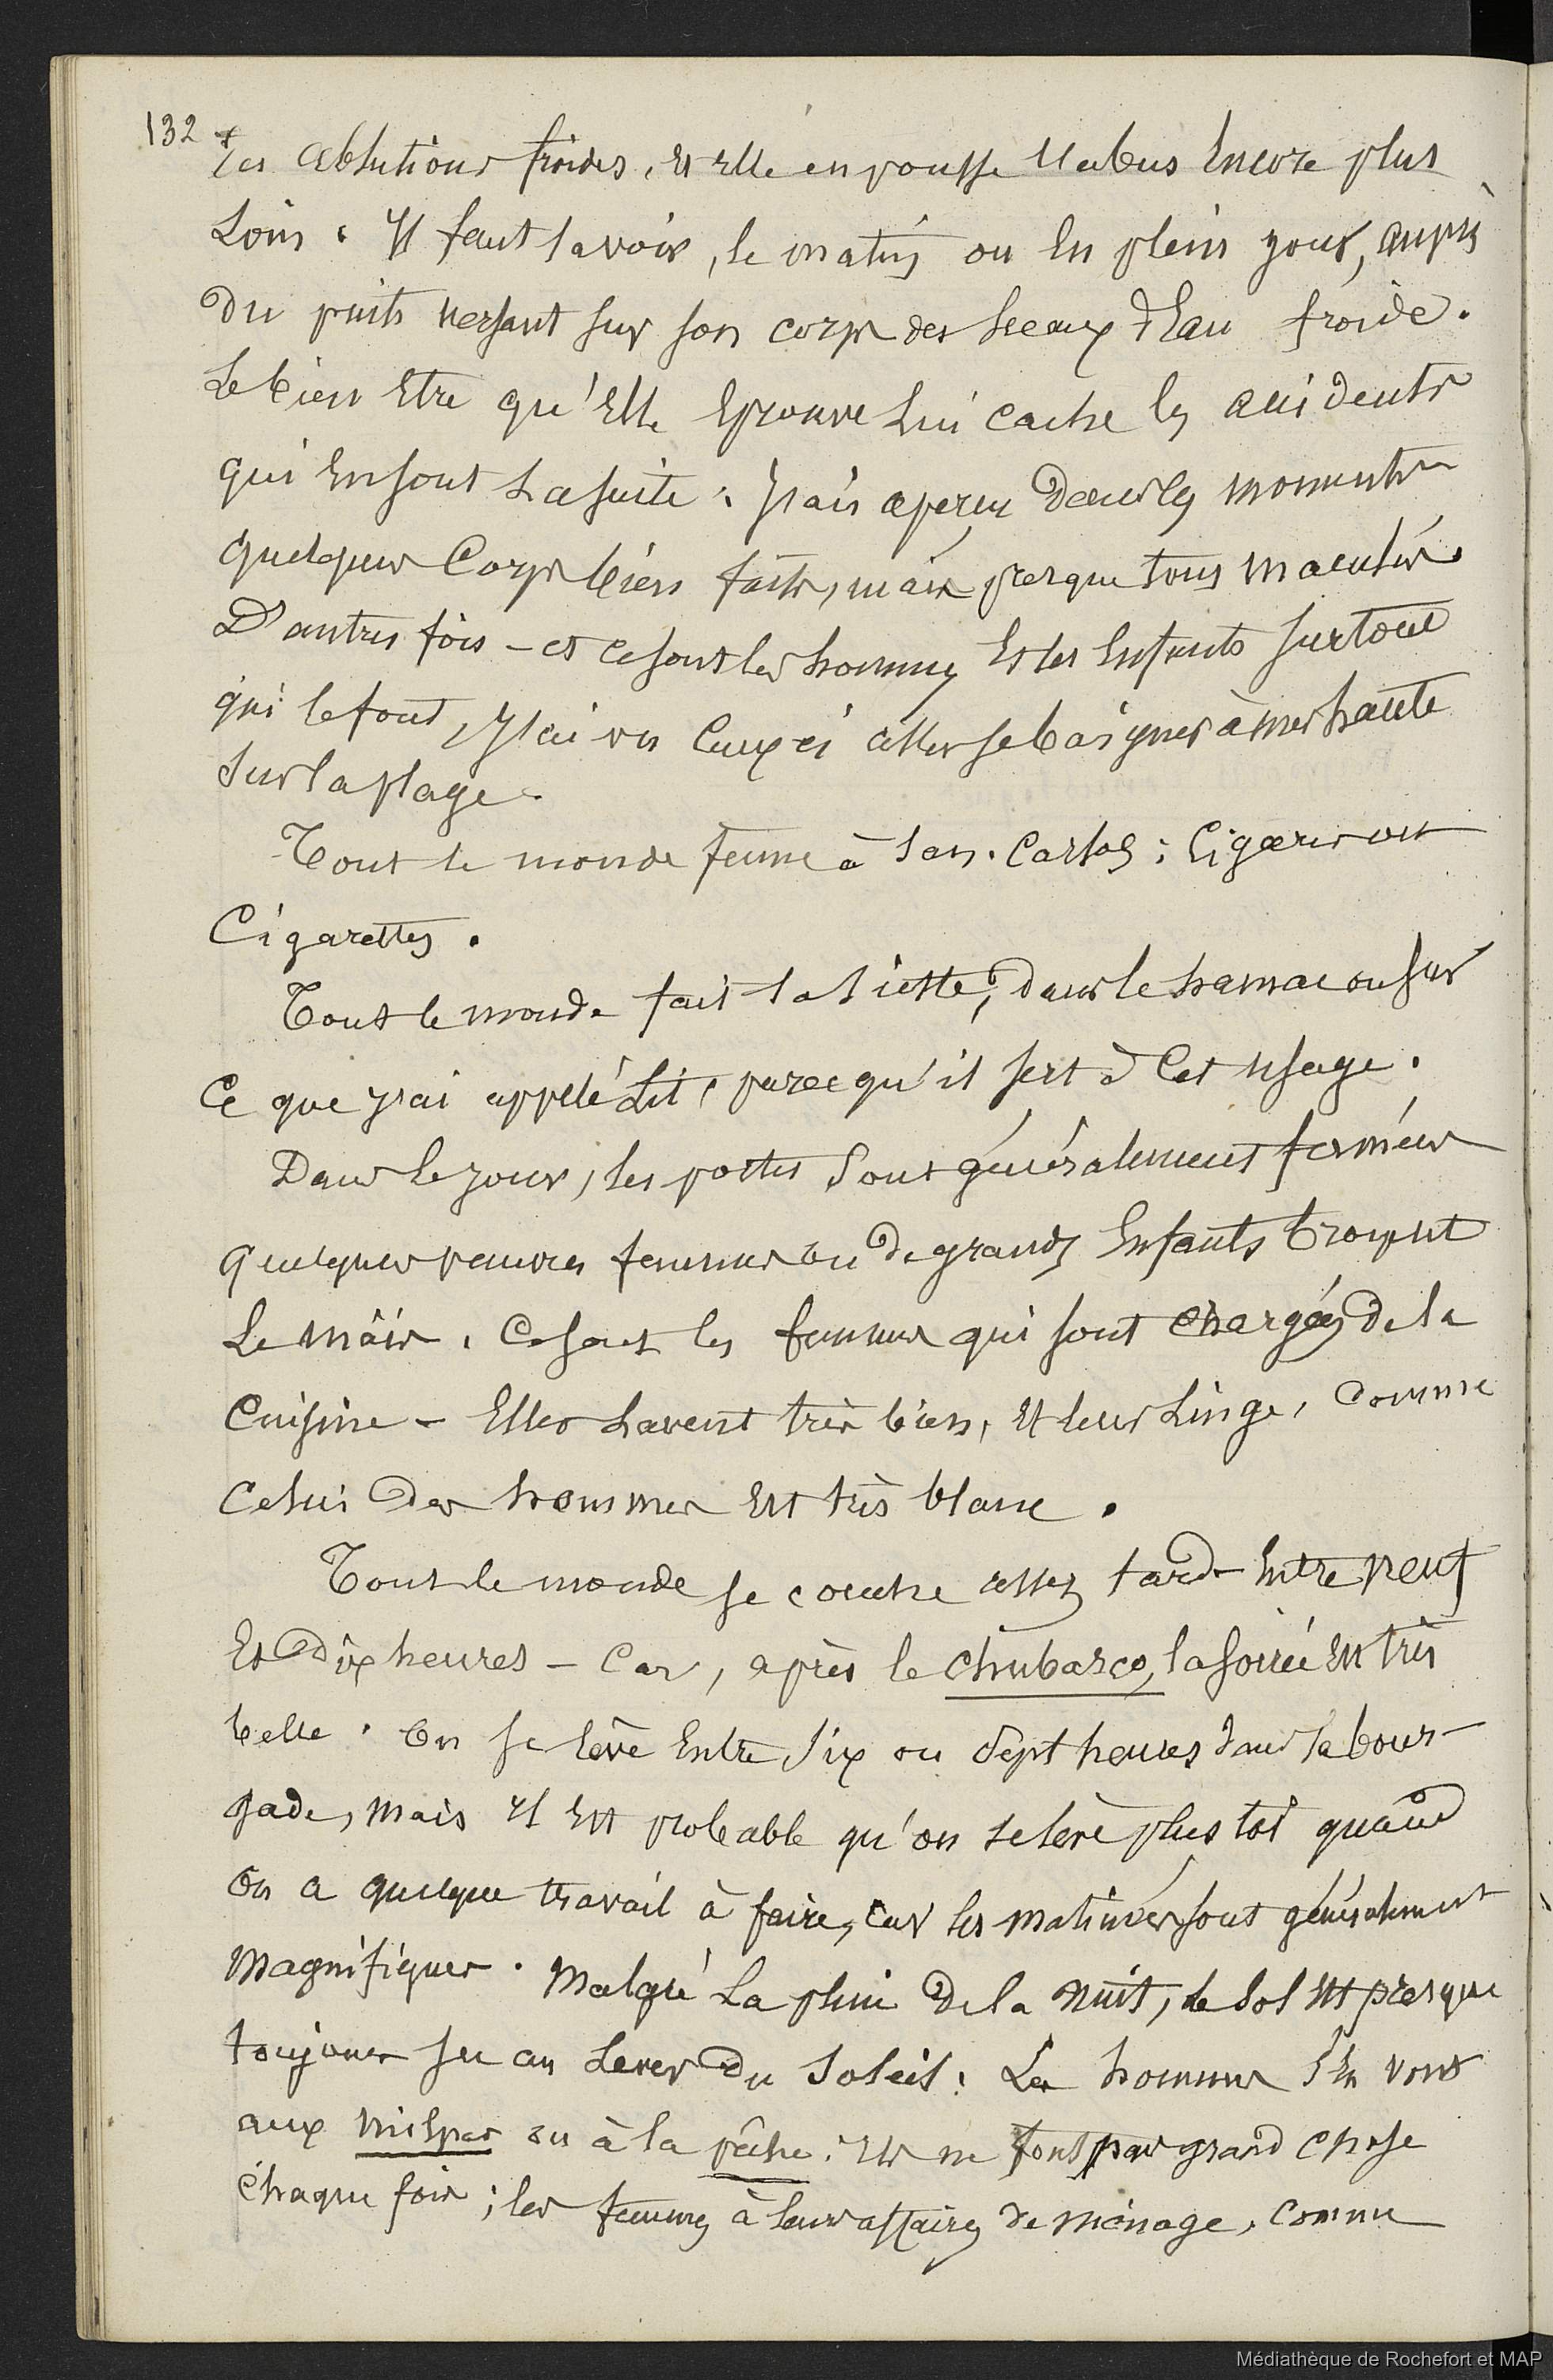 132
les ablutions froides, et elle en pousse l'abus encore plus
loin. Il faut la voir, le matin ou en plein jour, auprès
du puits versant sur son corps des seaux d'eau froide.
Le bien être qu'elle éprouve lui cache les accidents
qui en sont la suite. J'ai aperçu dans les moments
quelques corps bien faits, mais presque tous maculés.
D'autres fois - et ce sont les hommes et les enfants surtout
qui le font, j'ai vu ceux ci aller se baigner à mer haute
sur la plage.
Tout le monde fume à San. Carlos : Cigares ou
Cigarettes.
Tout le monde fait la sieste, dans le hamac ou sur
ce que j'ai appelé lit, parce qu'il sert à cet usage.
Dans le jour, les portes sont généralement fermées
quelques pauvres femmes ou de grands enfants broyent
le maïs. Ce sont les femmes qui sont chargées de la
cuisine - Elles lavent très bien, et leur linge, comme
celui des hommes est très blanc.
Tout le monde se couche assez tard entre neuf
et dix heures - Car, après le chubasco, la soirée est très
belle. On se lève entre six ou sept heures dans la bour-
gade, mais il est probable qu'on se lève plus tôt quand
on a quelque travail à faire, car les matinées sont généralement
magnifiques. Malgré la pluie de la nuit, le sol est presque
toujours sec au lever du soleil. Les hommes s'en vont
aux milpas ou à la pêche. Ils ne font pas grand chose
chaque fois ; les femmes à leurs affaires de ménage, comme
Médiathèque de Rochefort et MAP